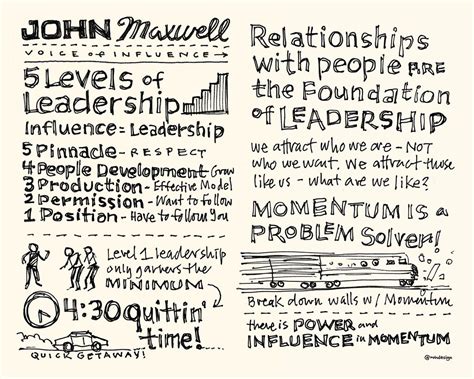 JOHN Maxwell
VOICE of INFLUENCE
5 Levels of
Leadership
Influence = Leadership
5 Pinnacle - RESPECT
4 People Development - Grow
3 Production - Effective Model
2 Permission - Want to follow
1 Position - Have to follow You
Level 1 leadership
only garners the
MINIMUM
4:30 quittin'
time!
QUICK GETAWAY!
Relationships
with people ARE
the Foundation
of LEADERSHIP
we attract who we are - NOT
who we want. We attract those
like us - what are we like?
MOMENTUM IS a
PROBLEM Solver!
Break down walls w/ Momentum
there is POWER and
INFLUENCE in MOMENTUM